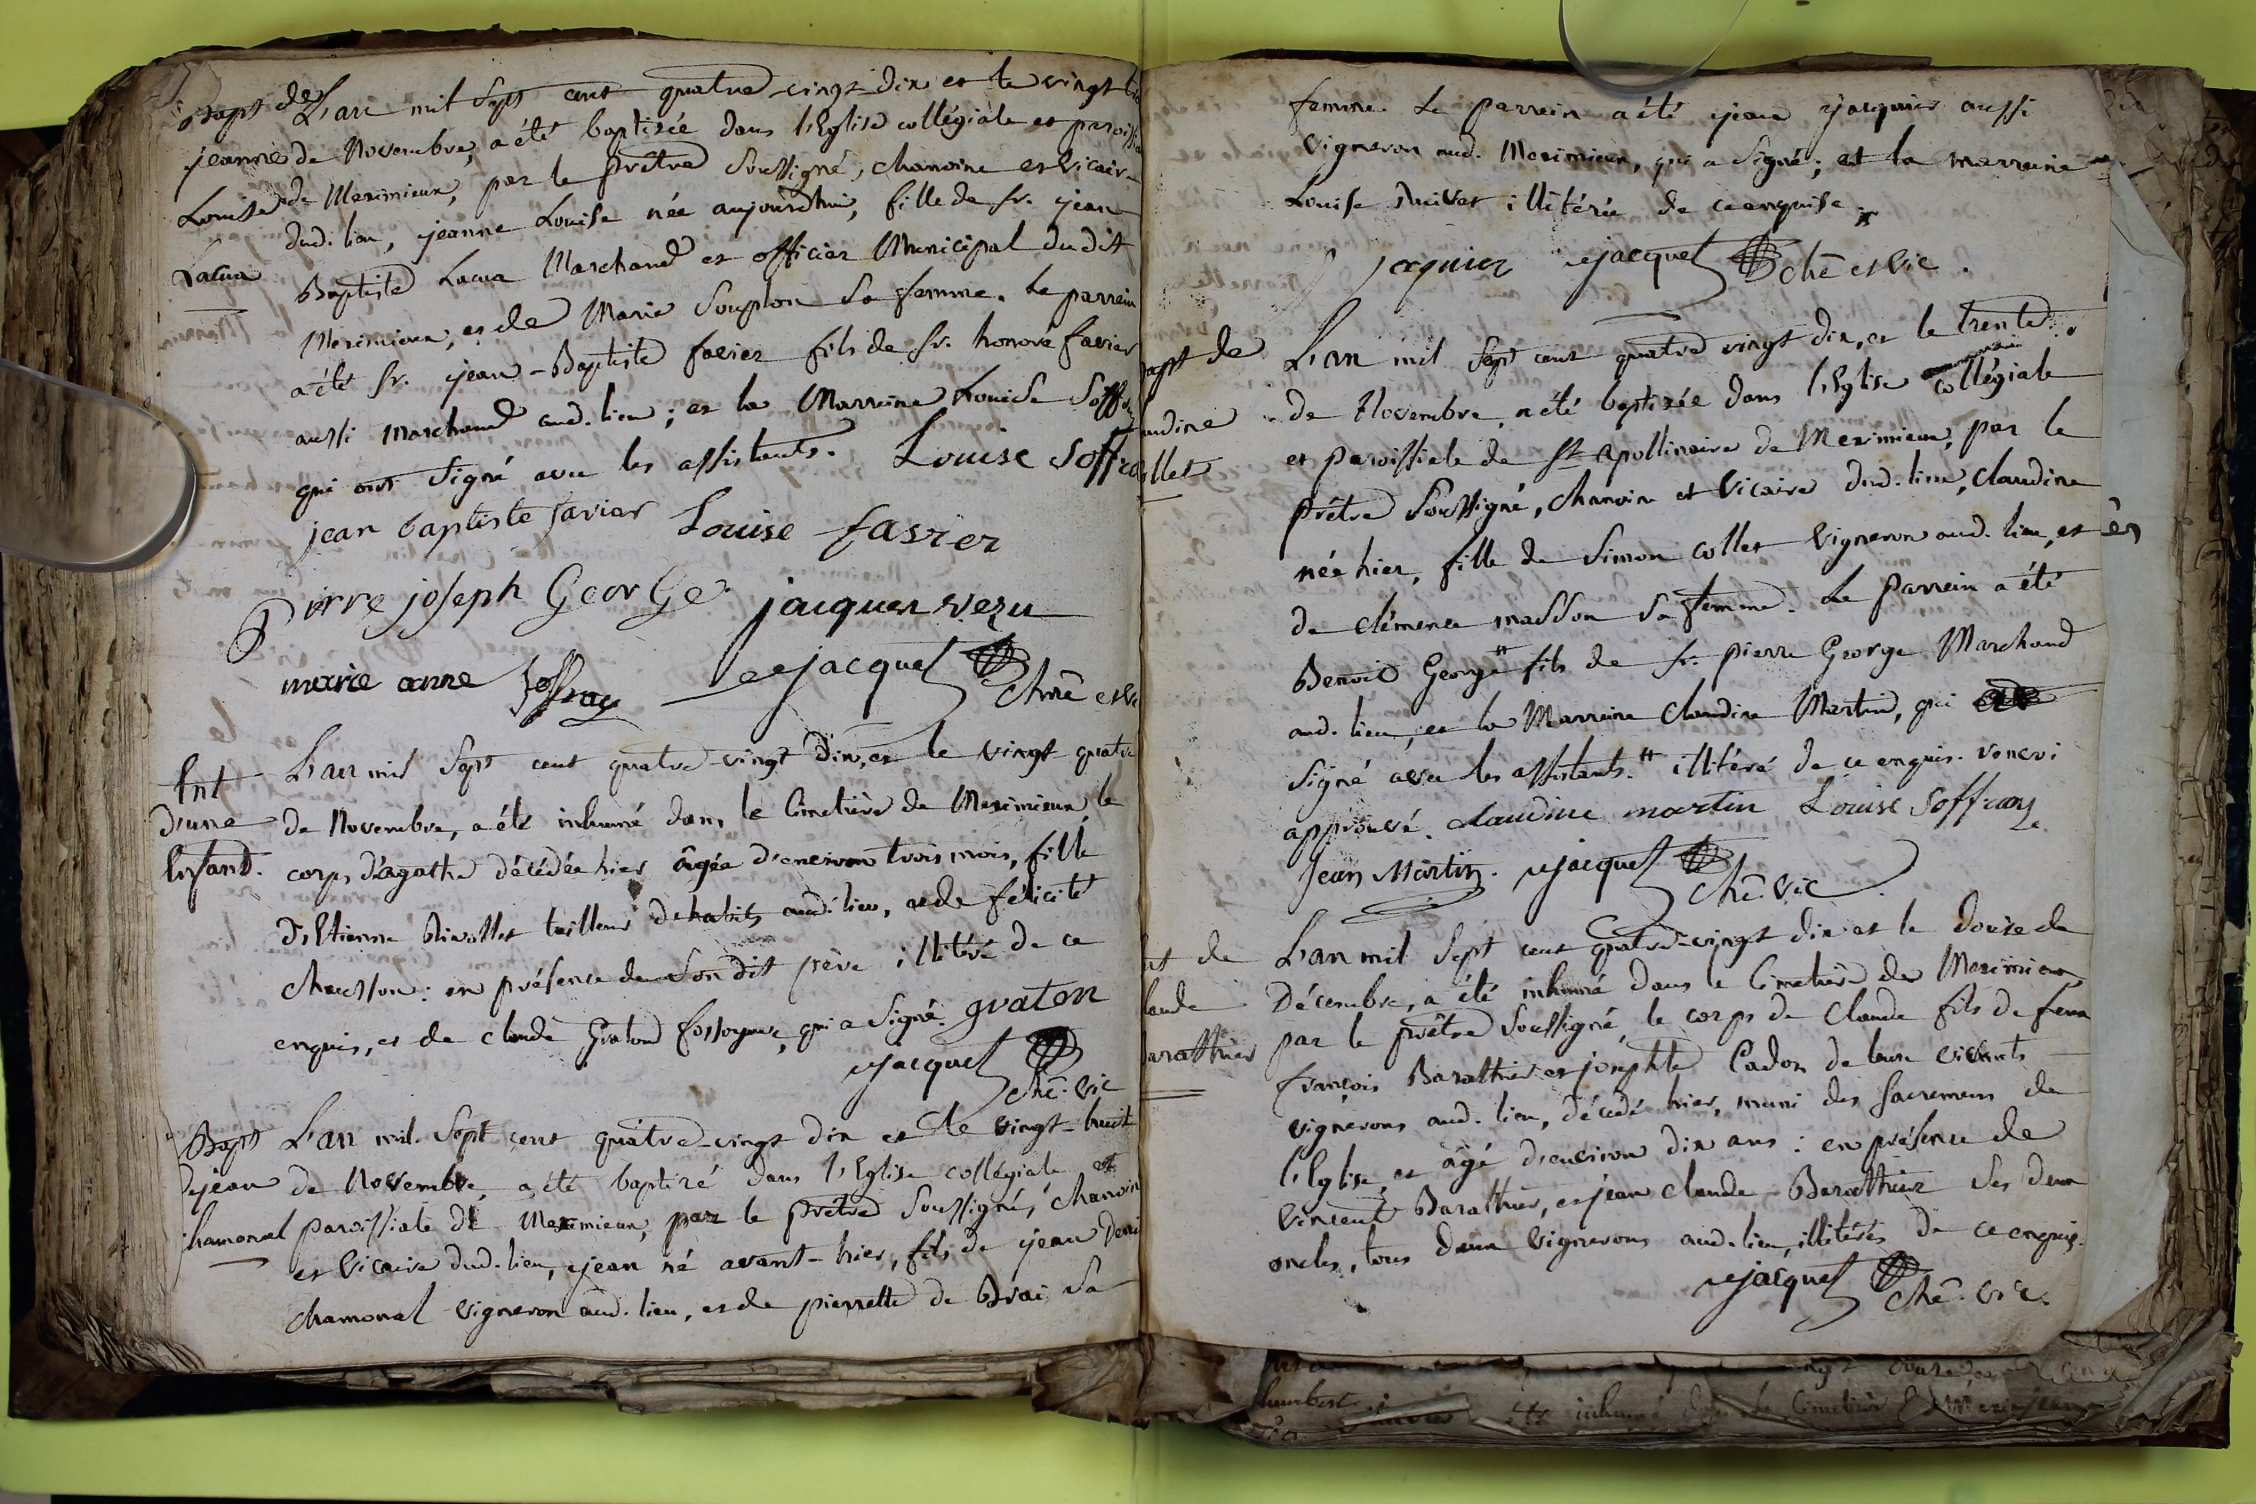 Bapt de L'an mil sept cent quatre-vingt-dix et le vingt
jeanne de Novembre, a été baptisée dans l'Eglise collégiale et paroissia
Louise de Meximieux, par le prêtre soussigné, chanoine et vicaire
dud. lieu, jeanne Louise née aujourdhui, fille de sr. jean
Lacua Baptiste Lacua Marchand et officier Municipal dudit
Meximieux, et de Marie Souplon sa femme. Le parrein
a été sr. jean-Baptiste favier fils de sr. honoré favier
aussi Marchand aud. lieu; et la Marreine Louise Soffra
qui ont signé avec les assistants. Louise Soffra
jean baptiste favier Louise favier
Pierre joseph George jacques vezu
marie anne Soffray jacquet chne et vic
Ent L'an mil sept cent quatre-vingt dix, et le vingt quatre
d'une de Novembre, a été inhumé dans le Cimetière de Meximieux, le
Enfant. corps d'agathe décédée hier âgée d'environ trois mois, fille
d'Etienne tailleur d'habits aud. lieu, et de félicité
chausson: en présence de son dit père illitéré de ce
enquis, et de claude Graton fossoyeur, qui a signé. graton
jacquet chne. vic
Bapt L'an mil sept cent quatre-vingt dix et le vingt-huit
de jean de Novembre, a été baptizé dans l'Eglise collégiale et
chamonal paroissiale de Meximieux, par le prêtre soussigné, chanoin
et vicaire dud. lieu, jean né avant-hier, fils de jean Deni
chamonal vigneron aud. lieu, et de pierrette de Brai sa
femme. Le parrein a été jean jacquier aussi
vigneron aud. Meximieux, qui a signé; et la marreine
Louise illitérée de ce enquise.
jacquier jacquet chne et vic.
apt de L'an mil sept cent quatre vingt dix, et le trente
audine de Novembre, a été baptisée dans l'Eglise collégiale
ollet et paroissiale de st Apollinaire de Meximieux, par le
prêtre soussigné, chanoine et vicaire dud. lieu, claudine
née hier, fille de Simon collet vigneron aud. lieu, et
de clémence masson sa femme. Le parrein a été
Benoit George # fils de sr. pierre George Marchand
aud. lieu, et la Marreine claudine Martin, qui
signé avec les assistants. # illitéré de ce enquis. renvoi
approuvé. claudine martin Louise Soffray
Jean Martin. jacquet chne. vic
nt de L'an mil sept cent quatre-vingt dix et le douze de
laude Décembre, a été inhumé dans le Cimetière de Meximieux
arathier par le prêtre soussigné, le corps de claude fils de feu
françois Barathier et josephte Cadon de leurs vivants
vignerons aud. lieu, décédé hier, muni des sacremens de
l'Eglise, et âgé d'environ dix ans: en présence de
vincent Barathier, et jean claude Barathier ses deux
oncles, tous deux vignerons aud. lieu, illitérés de ce enquis.
jacquet chne. vic.